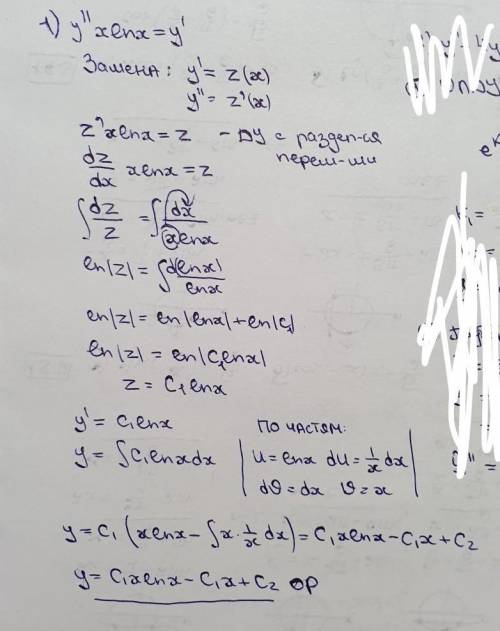 1) y'' x ln x = y'
Замена: y' = z(x)
y'' = z'(x)
z' x ln x = z - ДУ с раздел-ся
перем-ми
dz/dx x ln x = z
∫ dz/z = ∫ dx/(x ln x)
ln|z| = ∫ d(ln x)/ln x
ln|z| = ln|ln x| + ln|C₁|
ln|z| = ln|C₁ ln x|
z = C₁ ln x
y' = C₁ ln x
y = ∫ C₁ ln x dx
по частям:
u = ln x du = 1/x dx
dv = dx v = x
y = C₁ (x ln x - ∫ x · 1/x dx) = C₁ x ln x - C₁ x + C₂
y = C₁ x ln x - C₁ x + C₂ ОР